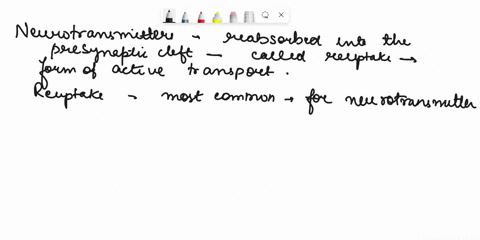 Neurotransmitters - reabsorbed into the
presynaptic cleft - called reuptake →
form of active transport.
Reuptake → most common → for neurotransmitter